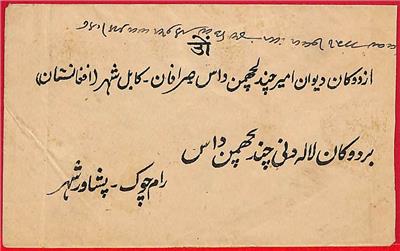 ਓਂ
از دوکان دیوان امیر چند لچھمن داس صرافان - کابل شہر (افغانستان)
بر دوکان لالہ دنی چند لچھمن داس
رام چوک - پشاور شہر